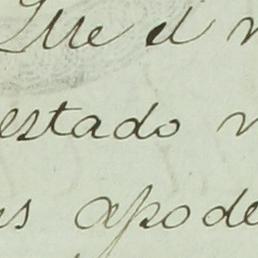 Que el
estado
apode